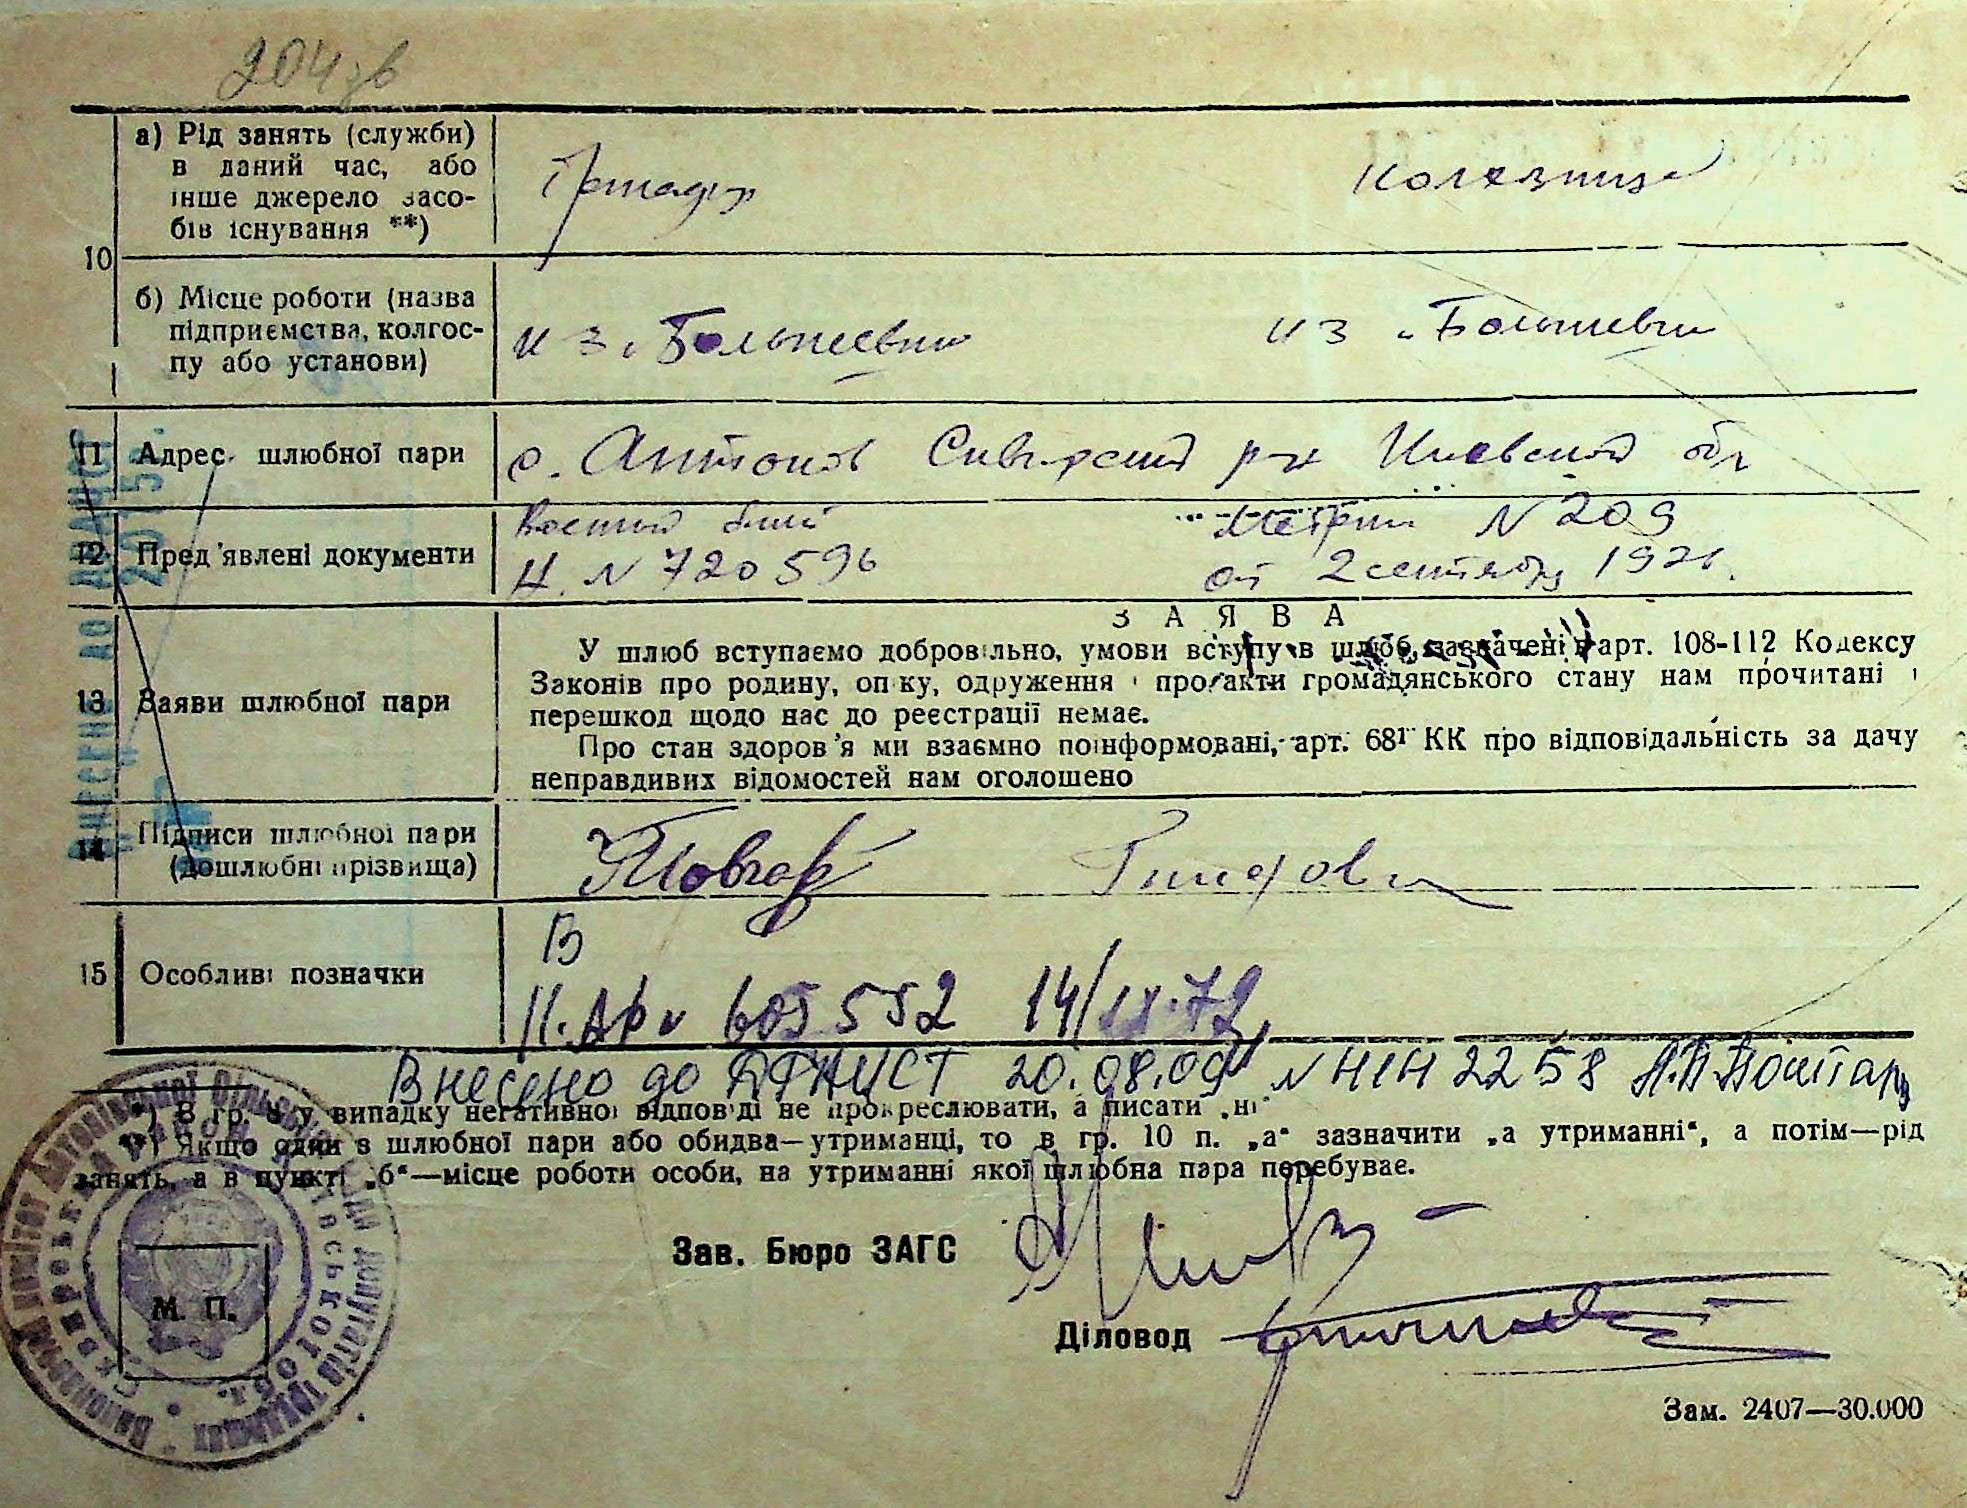 204зв
а) Рід занять (служби)
в даний час, або
інше джерело засо-
бів існування **)
10
б) Місце роботи (назва
підприємства, колгос-
пу або установи)
к з „Большевик
к з „Большевик
11 Адрес шлюбної пари
с. Антонов Сквирский р-н Киевской обл
12 Пред'явлені документи
Военный билет
Н. N 720596
Метрик N 209
от 2 сентября 192
ЗАЯВА
13 Заяви шлюбної пари
У шлюб вступаємо добровільно, умови вступу в шлюб, зазначені в арт. 108-112 Кодексу
Законів про родину, опіку, одруження і про акти громадянського стану нам прочитані і
перешкод щодо нас до реєстрації немає.
Про стан здоров'я ми взаємно поінформовані, арт. 68¹ КК про відповідальність за дачу
неправдивих відомостей нам оголошено
14 Підписи шлюбної пари
(дошлюбні прізвища)
15 Особливі позначки
В
605552 14/IX.72
Внесено до ДРАЦСТ 20.08.09 N
*) В гр. 8 у випадку негативної відповіді не прокреслювати, а писати „ні"
**) Якщо один з шлюбної пари або обидва—утриманці, то в гр. 10 п. „а" зазначити „а утриманні", а потім—рід
занять, а в пункті „б"—місце роботи особи, на утриманні якої шлюбна пара перебуває.
Зав. Бюро ЗАГС
М. П.
Діловод
Зам. 2407—30.000
ВНЕСЕНО ДО ДРАЦСТ